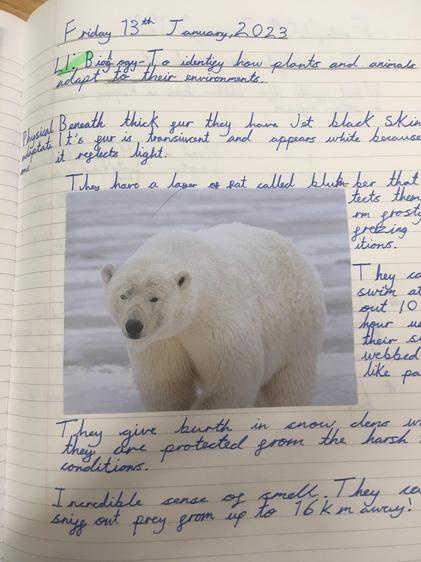 Friday 13th January, 2023
LI: Biology - To identify how plants and animals
adapt to their environments.
Physical
Beneath thick fur they have Jet black Skin
It's fur is translucent and appears white because
it reflects light.
They have a layer of fat called blubber that
tects them
rm frosty
freezing
itions.
They ca
swim at
out 10
hour us
their s
webbed
like pa
They give burth in snow dens w
they are protected from the harsh
conditions.
Incredible sense of smell. They ca
sniff out prey from up to 16km away!